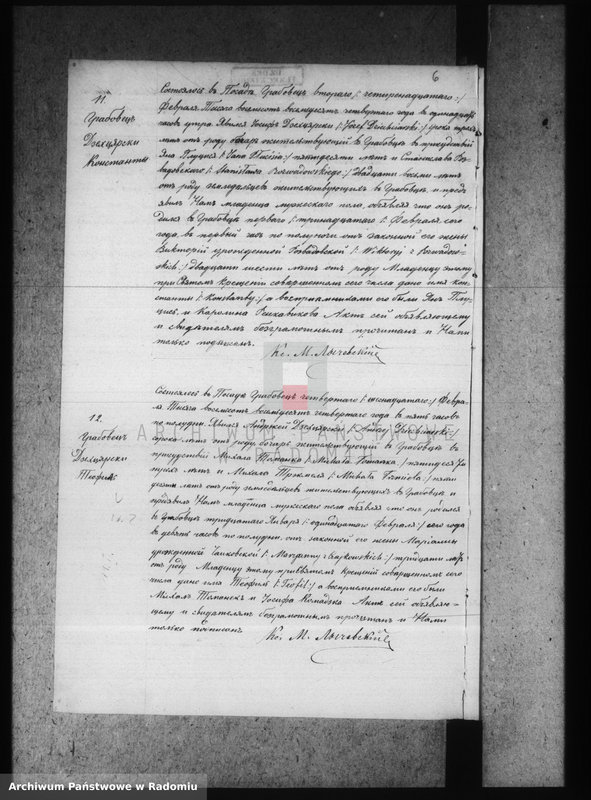 6
11.
Грабовецъ
Дзецярски
Константы
Состоялось въ Посадѣ Грабовецъ втораго /: четырнадцатаго :/
Февраля Тысяча восемьсотъ восемьдесятъ четвертаго года въ одинадцать
часовъ утра. Явился Іосифъ Дзецярски /: Józef :/ сорока трехъ
лѣтъ отъ роду жительствующій въ Грабовцѣ въ присутствіи
Яна Тлуцися /: Jana :/ пятидесяти лѣтъ и Станислава
/: Stanisława Rozwadowskiego :/ двадцати восьми лѣтъ
отъ роду земледѣльцевъ жительствующихъ въ Грабовцѣ и предъ-
явилъ Намъ младенца мужескаго пола, объявляя что онъ ро-
дился въ Грабовцѣ перваго /: тринадцатаго :/ Февраля сего
года, въ первый часъ по полуночи отъ законной его жены
Викторіи урожденной /: Wiktoryi z Rozwadow-
skich :/ двадцати шести лѣтъ отъ роду. Младенцу этому
при Святомъ Крещеніи совершенномъ сего числа дано имя Кон-
станты /: Konstanty :/ а воспріемниками его были
и Каролина Актъ сей объявляющему
и свидѣтелямъ безграмотнымъ прочитанъ и Нами
только подписанъ.
Кс. М. Лычевскій
12.
Грабовецъ
Дзецярски
Теофиль
Состоялось въ Посадѣ Грабовецъ четвертаго /: шестнадцатаго :/ Февра-
ля Тысяча восемьсотъ восемьдесятъ четвертаго года въ пять часовъ
по полудни. Явился Андржей Дзецярски /: Andrzej :/
сорока лѣтъ отъ роду жительствующій въ Грабовцѣ въ
присутствіи Михала Томанка /: Michała Tomanka :/ пятидесяти
трехъ лѣтъ и Михала /: Michała :/
лѣтъ отъ роду земледѣльцевъ жительствующихъ въ Грабовцѣ и
предъявилъ Намъ младенца мужескаго пола объявляя что онъ родился
въ Грабовцѣ тридцатаго Января /: одинадцатаго Февраля :/ сего года
въ девять часовъ по полудни, отъ законной его жены Маріанны
урожденной Чайковской /: Maryanny z Czajkowskich :/ тридцати лѣтъ
отъ роду. Младенцу этому при Святомъ Крещеніи совершенномъ сего
числа дано имя Теофиль /: Teofil :/ а воспріемниками его были
Михалъ Томанекъ и Іосифа Актъ сей объявляю-
щему и свидѣтелямъ безграмотнымъ прочитанъ и Нами
только подписанъ
Кс. М. Лычевскій
ARCHIWUM PAŃSTWOWE
W RADOMIU
Archiwum Państwowe w Radomiu